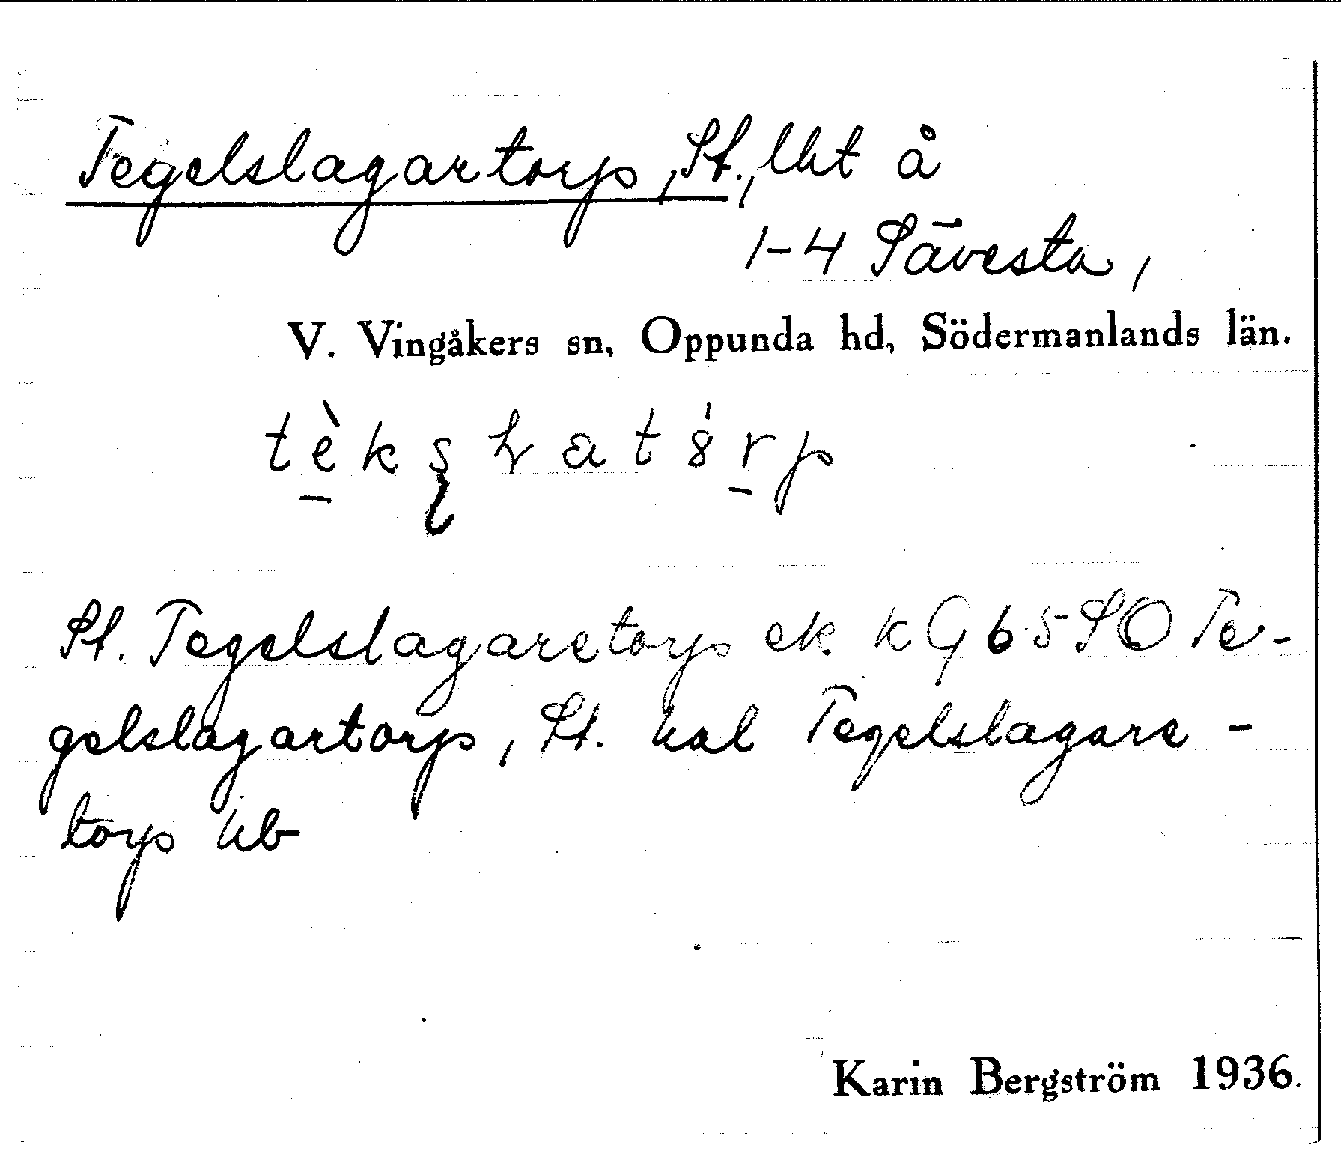 Tegelslagartorp, St., lht å
1-4 Sävesta,
V. Vingåkers sn, Oppunda hd, Södermanlands län.
St. Tegelslagaretorp ek. k G 65 SO Te-
gelslagartorp, St. hal Tegelslagare-
torp hb
Karin Bergström 1936.